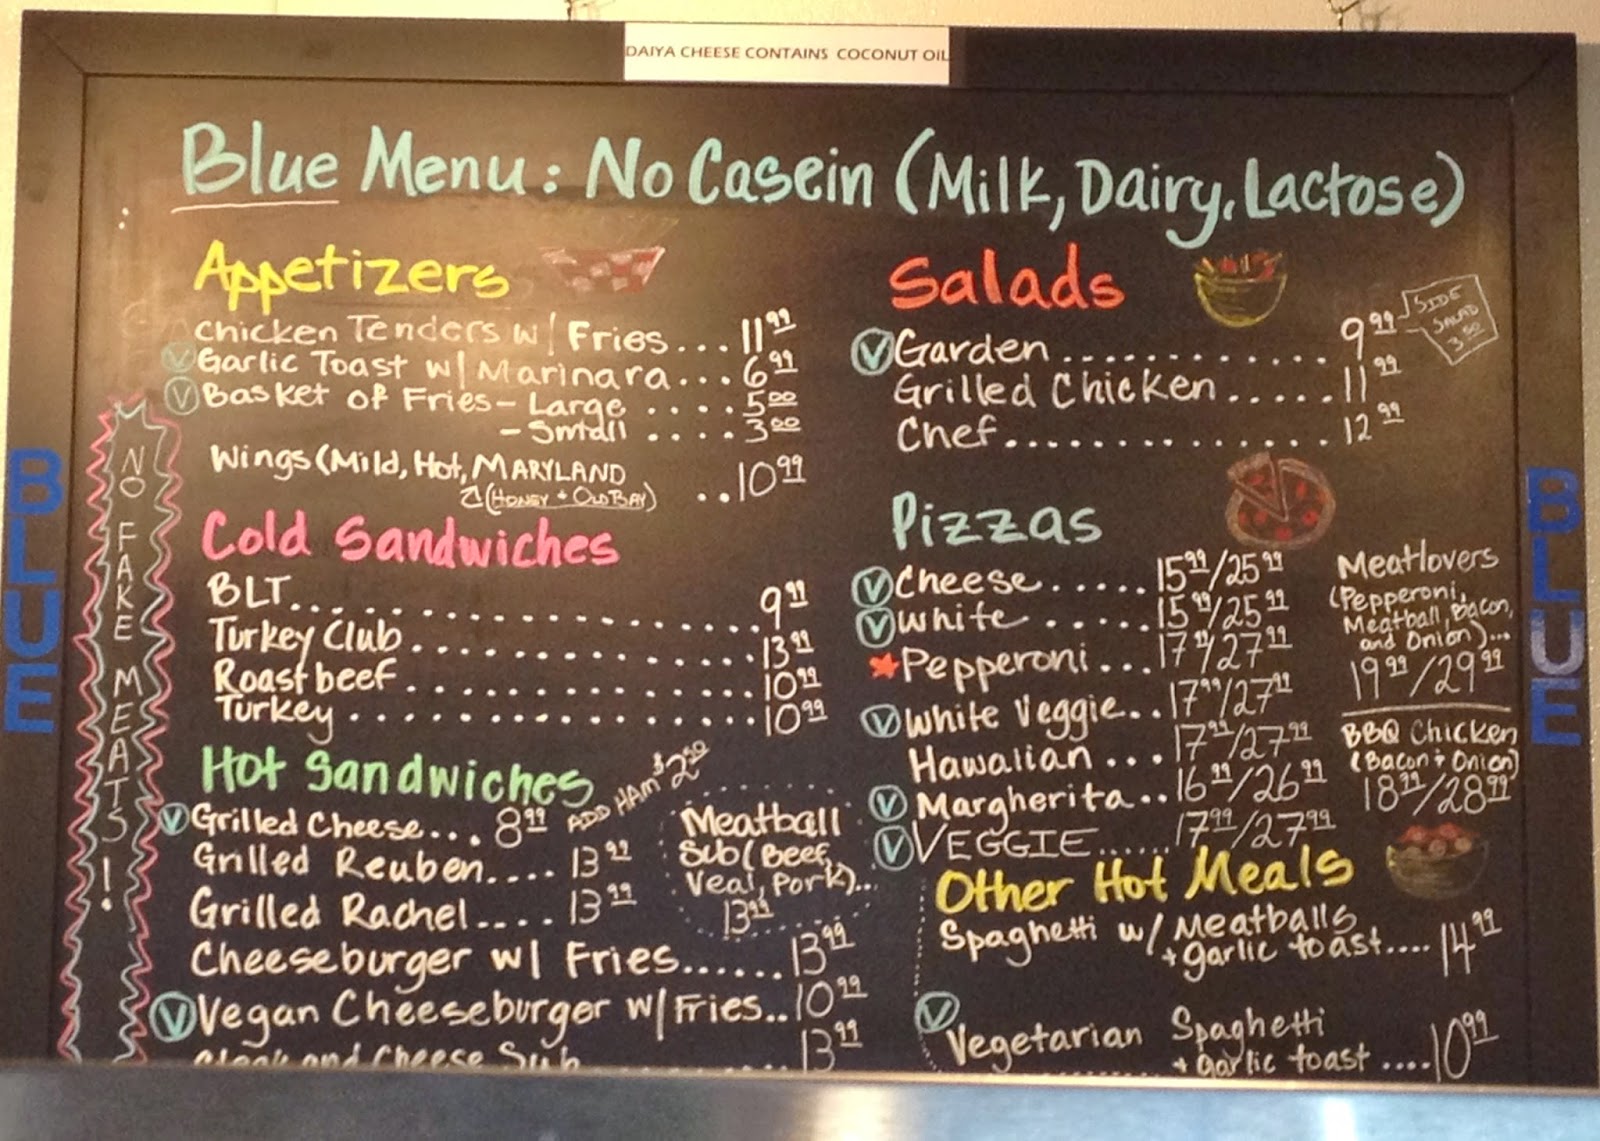 DAIYA CHEESE CONTAINS COCONUT OIL
Blue Menu: No Casein (Milk, Dairy, Lactose)
BLUE
NO FAKE MEATS!
Appetizers
Chicken Tenders w/ Fries... 11 99
V Garlic Toast w/ Marinara... 6 99
V Basket of Fries - Large .... 5 00
- Small .... 3 00
Wings (Mild, Hot, MARYLAND
(HONEY + OLD BAY) .. 10 99
Cold Sandwiches
BLT................ 9 99
Turkey Club............... 13 99
Roast beef............... 10 99
Turkey................. 10 99
Hot Sandwiches
V Grilled Cheese... 8 99 ADD HAM $2.50
Grilled Reuben.... 13 99
Grilled Rachel.... 13 99
Meatball
Sub (Beef,
Veal, Pork)...
13 99
Cheeseburger w/ Fries...... 13 99
V Vegan Cheeseburger w/ Fries.. 10 99
Steak and Cheese Sub 13 99
Salads
V Garden............ 9 99
SIDE
SALAD
3.50
Grilled Chicken..... 11 99
Chef............. 12 99
Pizzas
V Cheese..... 15 99/25 99
V White..... 15 99/25 99
Pepperoni... 17 99/27 99
V White Veggie.. 17 99/27 99
Hawaiian... 17 99/27 99
V Margherita.. 16 99/26 99
V VEGGIE...... 17 99/27 99
Meatlovers
(Pepperoni,
Meatball, Bacon,
and Onion)...
19 99/29 99
BBQ Chicken
(Bacon + Onion)
18 99/28 99
Other Hot Meals
Spaghetti w/ Meatballs
+ garlic toast.... 14 99
V Vegetarian Spaghetti
+ Garlic toast .... 10 99
BLUE